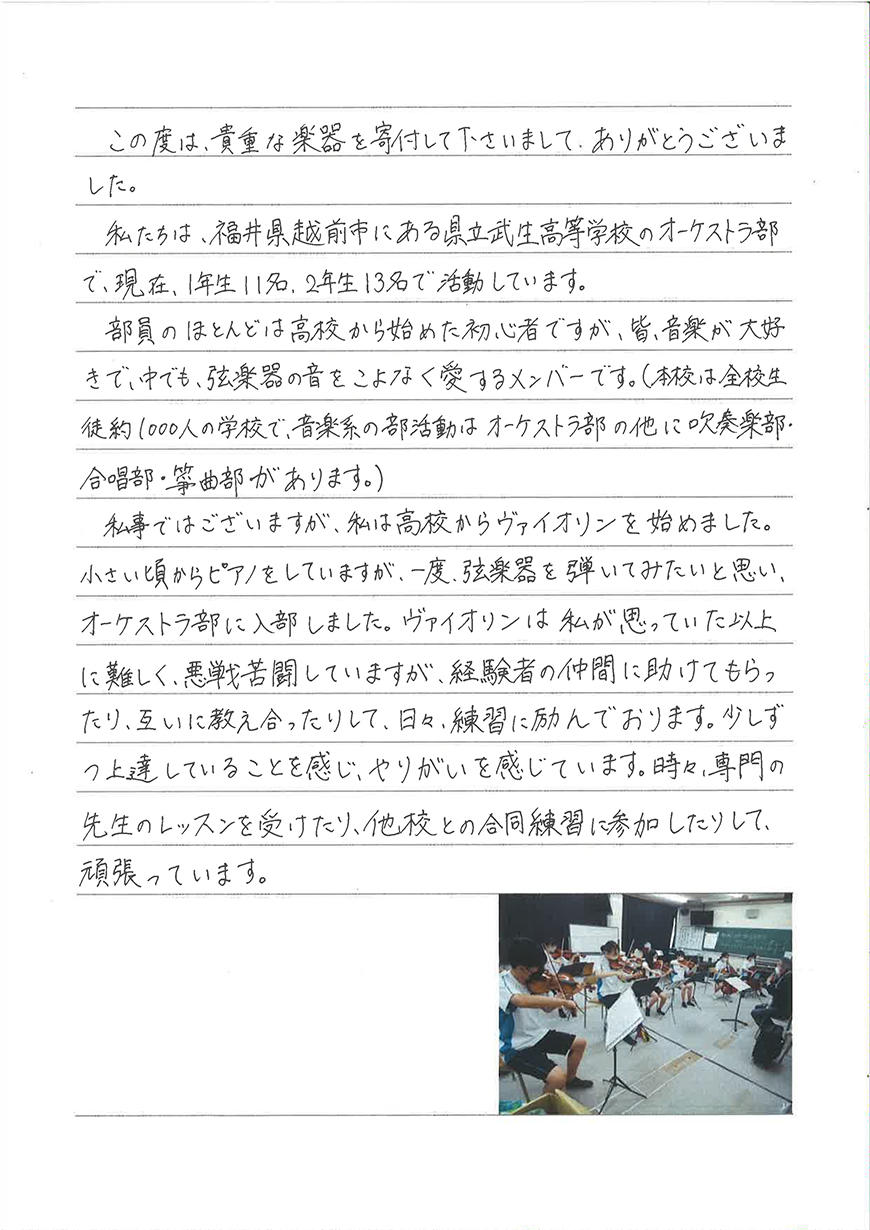 この度は、貴重な楽器を寄付して下さいまして、ありがとうございま
した。
私たちは、福井県越前市にある県立武生高等学校のオーケストラ部
で、現在、1年生11名、2年生13名で活動しています。
部員のほとんどは高校から始めた初心者ですが、皆、音楽が大好
きで、中でも、弦楽器の音をこよなく愛するメンバーです。(本校は全校生
徒約1000人の学校で、音楽系の部活動はオーケストラ部の他に吹奏楽部・
合唱部・箏曲部があります。)
私事ではございますが、私は高校からヴァイオリンを始めました。
小さい頃からピアノをしていますが、一度、弦楽器を弾いてみたいと思い、
オーケストラ部に入部しました。ヴァイオリンは私が思っていた以上
に難しく、悪戦苦闘していますが、経験者の仲間に助けてもらっ
たり、互いに教え合ったりして、日々、練習に励んでおります。少しず
つ上達していることを感じ、やりがいを感じています。時々、専門の
先生のレッスンを受けたり、他校との合同練習に参加したりして、
頑張っています。